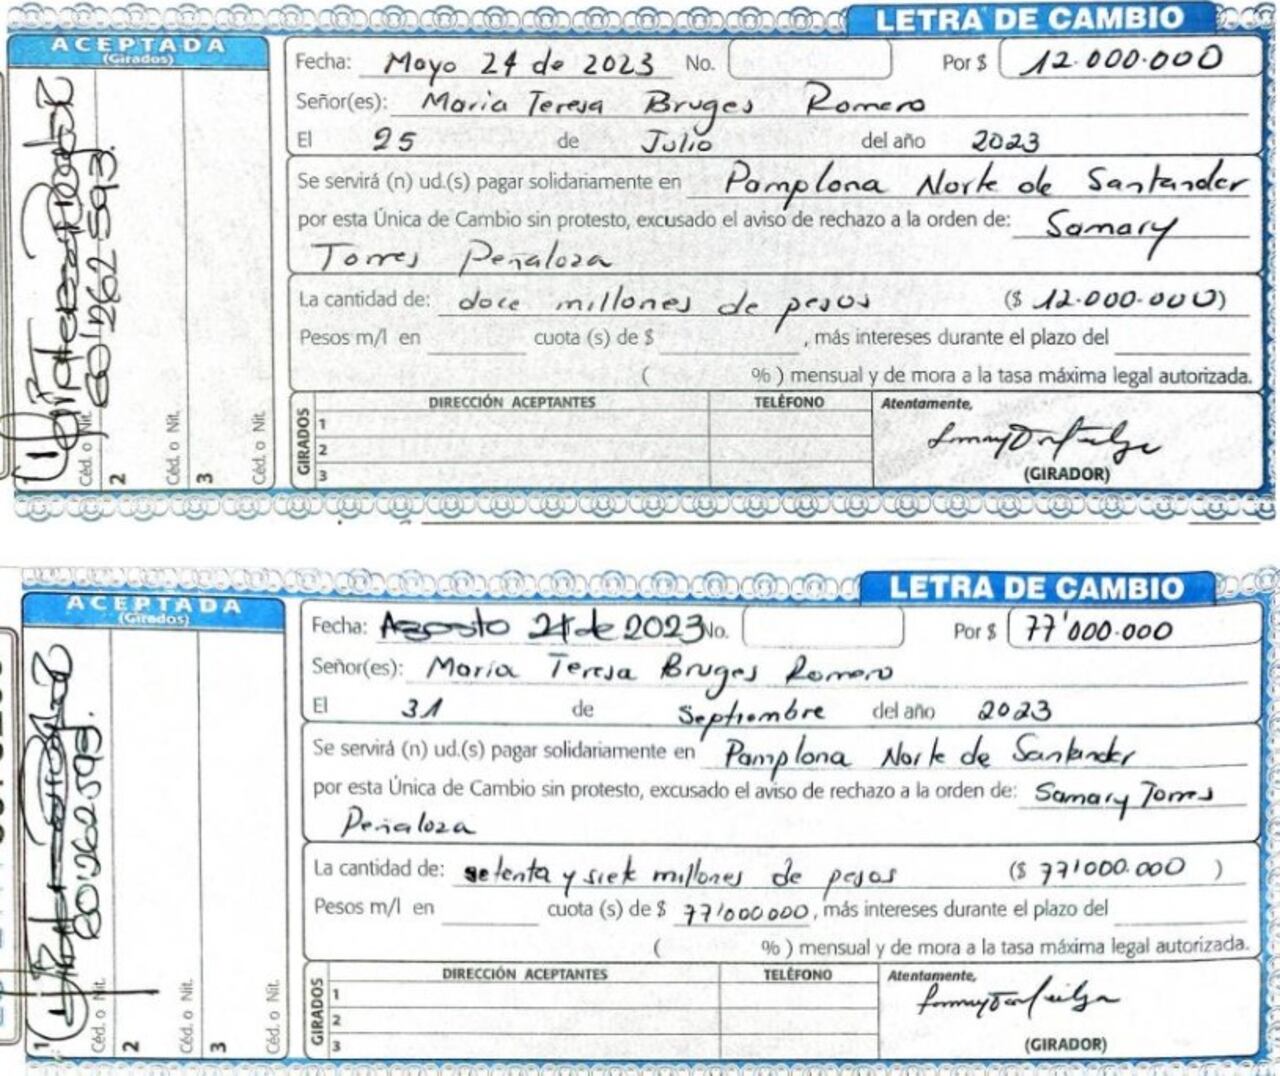 LETRA DE CAMBIO
ACEPTADA
(Girados)
Fecha: Mayo 24 de 2023 No. Por $ 12.000.000
Señor(es): Maria Teresa Bruges Romero
El 25 de Julio del año 2023
Se servirá (n) ud.(s) pagar solidariamente en Pamplona Norte de Santander
por esta Única de Cambio sin protesto, excusado el aviso de rechazo a la orden de: Samary
Torres Peñaloza
La cantidad de: doce millones de pesos ($ 12.000.000)
Pesos m/l en cuota (s) de $ , más intereses durante el plazo del
( % ) mensual y de mora a la tasa máxima legal autorizada.
DIRECCIÓN ACEPTANTES TELÉFONO Atentamente,
GIRADOS
1
2
3
(GIRADOR)
1 Céd. o Nit.
2 Céd. o Nit.
3 Céd. o Nit.
LETRA DE CAMBIO
ACEPTADA
(Girados)
Fecha: Agosto 24 de 2023 No. Por $ 77'000.000
Señor(es): Maria Teresa Bruges Romero
El 31 de Septiembre del año 2023
Se servirá (n) ud.(s) pagar solidariamente en Pamplona Norte de Santander
por esta Única de Cambio sin protesto, excusado el aviso de rechazo a la orden de: Samary Torres
Peñaloza
La cantidad de: setenta y siete millones de pesos ($ 77'000.000 )
Pesos m/l en cuota (s) de $ 77'000000, más intereses durante el plazo del
( % ) mensual y de mora a la tasa máxima legal autorizada.
DIRECCIÓN ACEPTANTES TELÉFONO Atentamente,
GIRADOS
1
2
3
(GIRADOR)
1 Céd. o Nit.
2 Céd. o Nit.
3 Céd. o Nit.